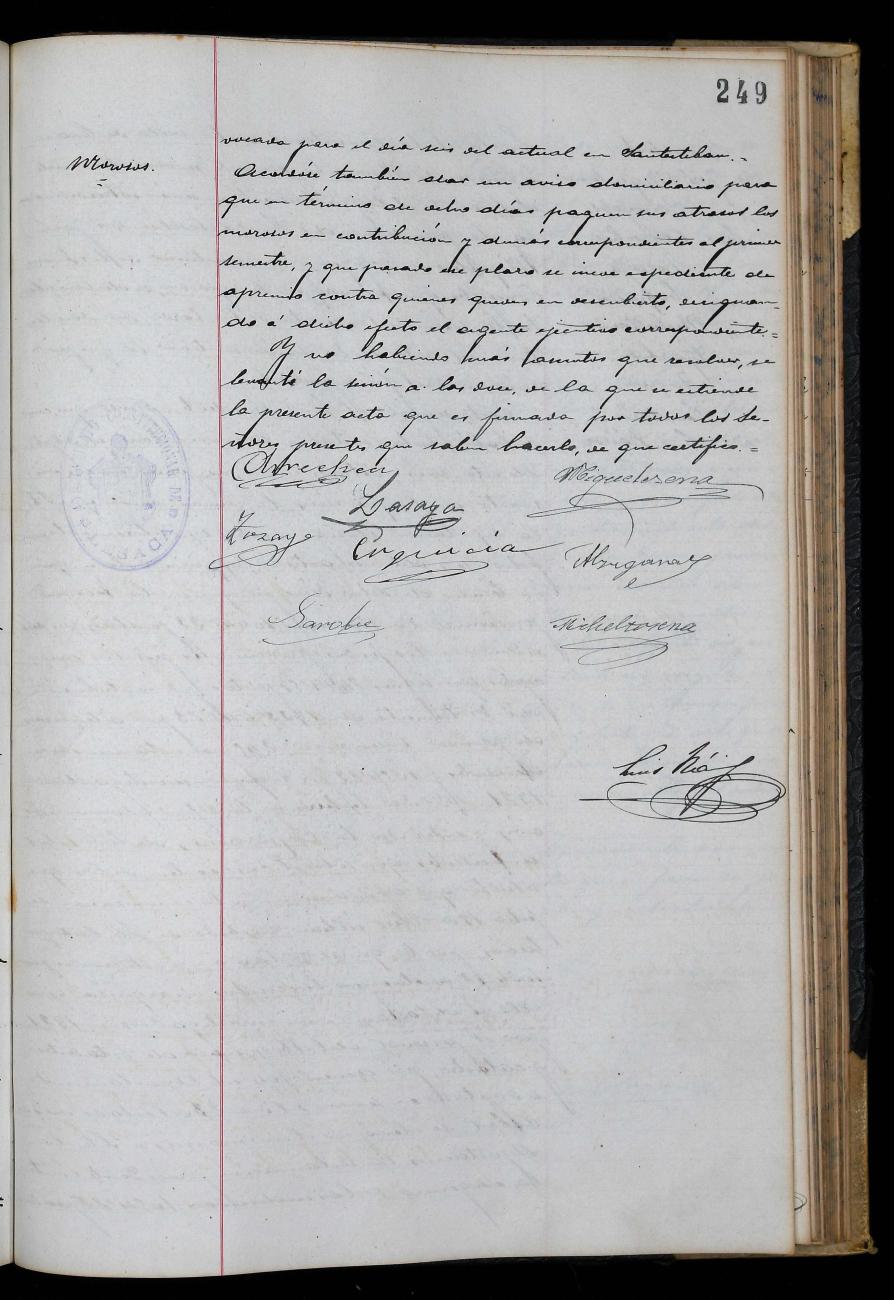 249
vocada para el día seis del actual en Santesteban.-
Morosos.
Acordóse también dar un aviso domiciliario para
que en término de ocho días paguen sus atrasos los
morosos en contribución y demás correspondientes al primer
semestre, y que pasado ese plazo se incoe espediente de
apremio contra quienes queden en descubierto, designan-
do á dicho efecto el agente ejecutivo correspondiente.=
Y no habiendo más asuntos que resolver, se
levantó la sesión a las doce, de la que se estiende
la presente acta que es firmada por todos los Se-
ñores presentes que saben hacerlo, de que certifico.=
Arrechea
Miguelezena
Zozaya
Zozaya
Erquicia
Sarobe
Michelzorena
Luis